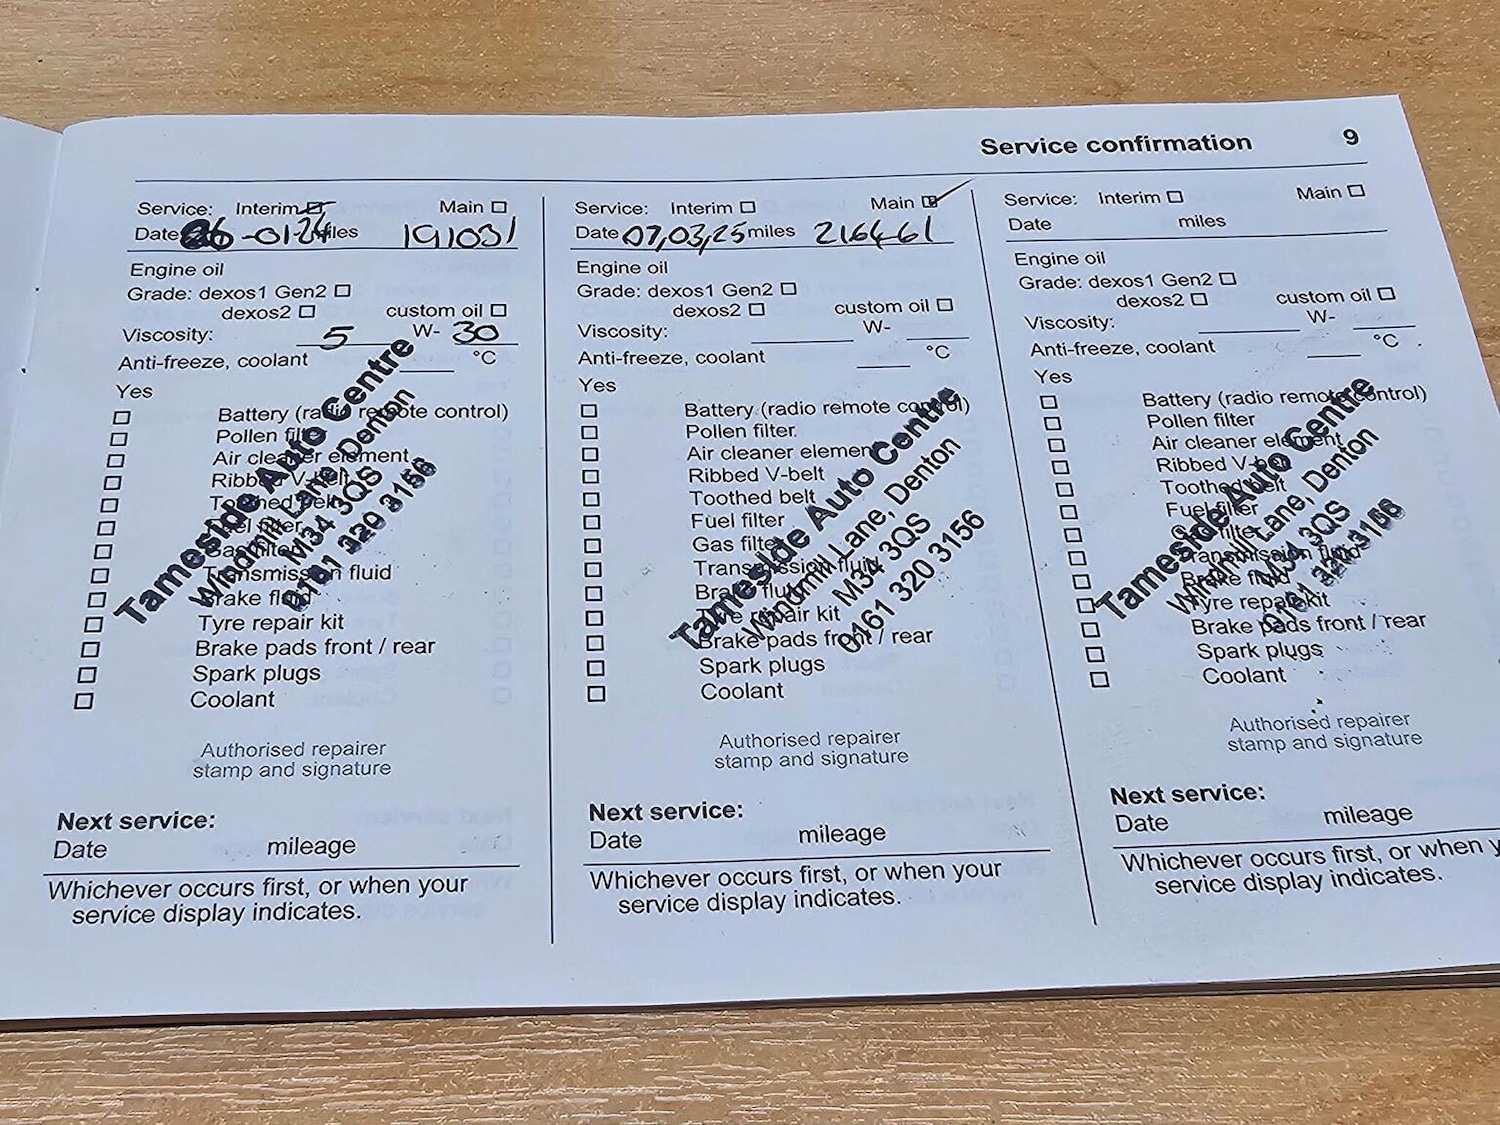 Service confirmation 9
Service: Interim Main
Date 26-01-24 miles 191031
Engine oil
Grade: dexos1 Gen2
dexos2 custom oil
Viscosity: 5 W- 30
Anti-freeze, coolant °C
Yes
Battery (radio remote control)
Pollen filter
Air cleaner element
Ribbed V-belt
Toothed belt
Fuel filter
Gas filter
Transmission fluid
Brake fluid
Tyre repair kit
Brake pads front / rear
Spark plugs
Coolant
Tameside Auto Centre
Windmill Lane, Denton
M34 3QS
0161 320 3156
Authorised repairer
stamp and signature
Next service:
Date mileage
Whichever occurs first, or when your
service display indicates.
Service: Interim Main
Date 07,03,25 miles 216461
Engine oil
Grade: dexos1 Gen2
dexos2 custom oil
Viscosity: W-
Anti-freeze, coolant °C
Yes
Battery (radio remote control)
Pollen filter
Air cleaner element
Ribbed V-belt
Toothed belt
Fuel filter
Gas filter
Transmission fluid
Brake fluid
Tyre repair kit
Brake pads front / rear
Spark plugs
Coolant
Tameside Auto Centre
Windmill Lane, Denton
M34 3QS
0161 320 3156
Authorised repairer
stamp and signature
Next service:
Date mileage
Whichever occurs first, or when your
service display indicates.
Service: Interim Main
Date miles
Engine oil
Grade: dexos1 Gen2
dexos2 custom oil
Viscosity: W-
Anti-freeze, coolant °C
Yes
Battery (radio remote control)
Pollen filter
Air cleaner element
Ribbed V-belt
Toothed belt
Fuel filter
Gas filter
Transmission fluid
Brake fluid
Tyre repair kit
Brake pads front / rear
Spark plugs
Coolant
Tameside Auto Centre
Windmill Lane, Denton
M34 3QS
0161 320 3156
Authorised repairer
stamp and signature
Next service:
Date mileage
Whichever occurs first, or when
service display indicates.